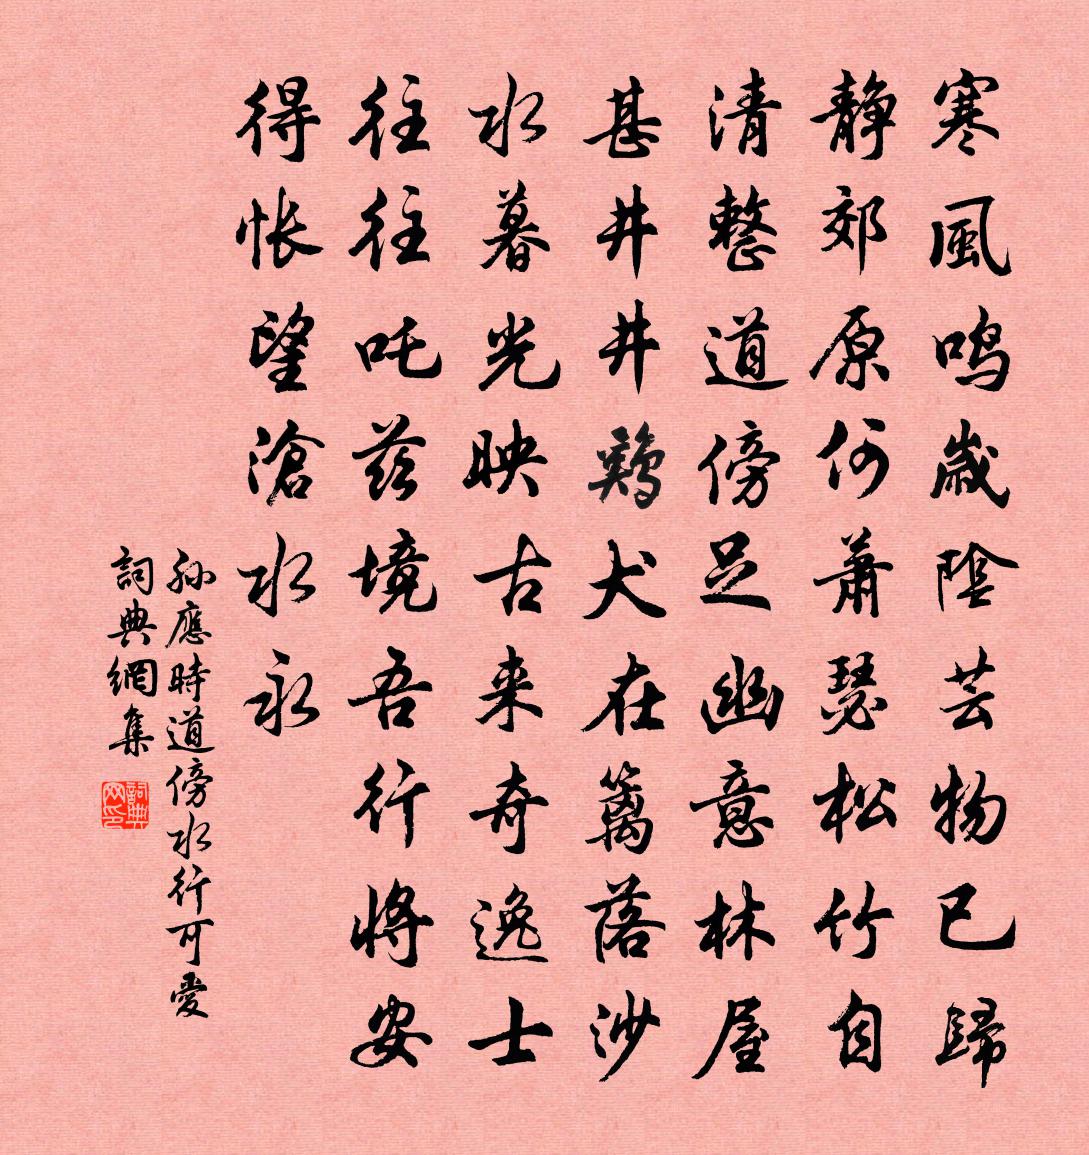 寒風鳴歲陰芸物已歸
静郊原何蕭瑟松竹自
清整道傍足幽意林屋
甚井井鷄犬在籬落沙
水暮光映古来奇逸士
往往吒兹境吾行将安
得悵望滄水永
孙應時道傍水行可愛
詞典網集
詞典网印